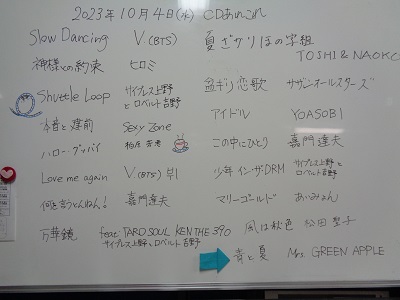 2023年10月4日(水) CDあれこれ
Slow Dancing V(BTS)
神様との約束 ヒロミ
Shuttle Loop サイプレス上野とロベルト吉野
本音と建前 Sexy Zone
ハロー・グッバイ 柏原芳恵
Love me again V(BTS) 뷔
何を言うとんねん! 嘉門達夫
万華鏡 feat. TARO SOUL, KEN THE 390
サイプレス上野とロベルト吉野
夏ざかりほの字組
TOSHI & NAOKO
盆ギリ恋歌 サザンオールスターズ
アイドル YOASOBI
この中にひとり 嘉門達夫
少年イン・ザ・DRM サイプレス上野とロベルト吉野
マリーゴールド あいみょん
風は秋色 松田聖子
青と夏 Mrs. GREEN APPLE